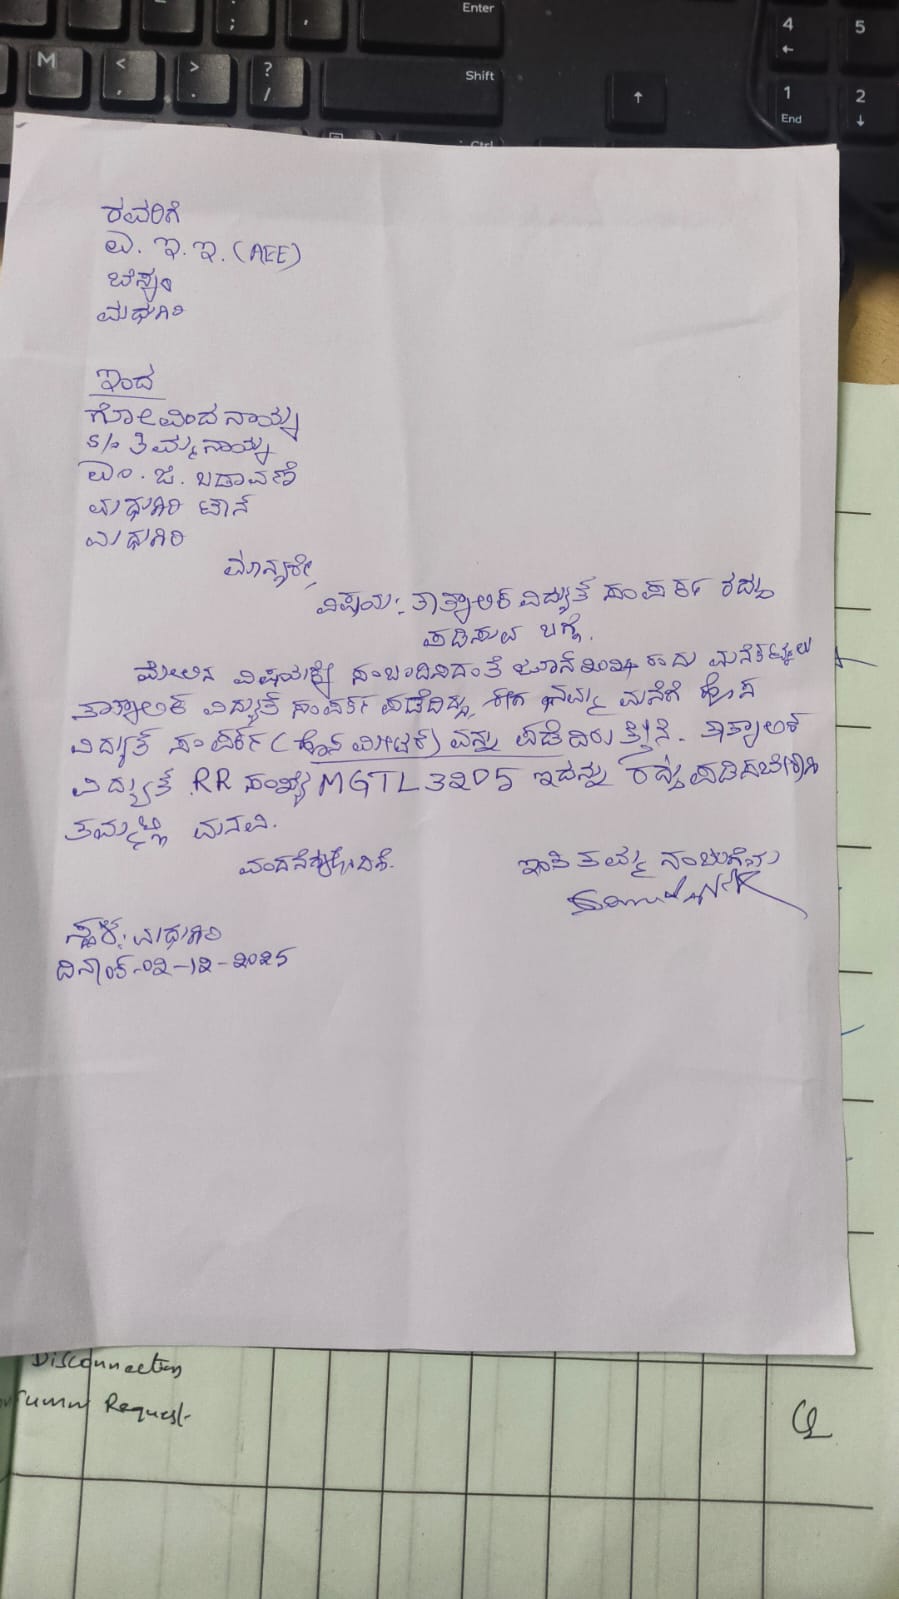 Enter
;
M
<
,
>
.
?
/
Shift
↑
4
←
5
1
End
2
↓
Ctrl
ರವರಿಗೆ
ಎ. ಇ. ಇ. (AEE)
ಬೆಸ್ಕಂ
ಮಧುಗಿರಿ
ಇಂದ
ಗೋವಿಂದನಾಯ್ಕ
S/o ತಿಮ್ಮನಾಯ್ಕ
ಎಂ. ಜಿ. ಬಡಾವಣೆ
ಮಧುಗಿರಿ ಟೌನ್
ಮಧುಗಿರಿ
ಮಾನ್ಯರೇ,
ವಿಷಯ: ತಾತ್ಕಾಲಿಕ ವಿದ್ಯುತ್ ಸಂಪರ್ಕ ರದ್ದು
ಪಡಿಸುವ ಬಗ್ಗೆ.
ಮೇಲಿನ ವಿಷಯಕ್ಕೆ ಸಂಬಂದಿಸಿದಂತೆ ಜೂನ್ ೨೦೨೪ ರಂದು ಮನೆಕಟ್ಟಲು
ತಾತ್ಕಾಲಿಕ ವಿದ್ಯುತ್ ಸಂಪರ್ಕ ಪಡೆದಿದ್ದು, ಈಗ ನಮ್ಮ ಮನೆಗೆ ಹೊಸ
ವಿದ್ಯುತ್ ಸಂಪರ್ಕ (ಹೊಸ ಮೀಟರ್) ವನ್ನು ಪಡೆದಿರುತ್ತೇನೆ. ತಾತ್ಕಾಲಿಕ
ವಿದ್ಯುತ್ RR ಸಂಖ್ಯೆ MGTL3205 ಇದನ್ನು ರದ್ದುಪಡಿಸಬೇಕಾಗಿ
ತಮ್ಮಲ್ಲಿ ಮನವಿ.
ವಂದನೆಗಳೊಂದಿಗೆ.
ಇಂತಿ ತಮ್ಮ ನಂಬುಗೆಯ
ಸ್ಥಳ: ಮಧುಗಿರಿ
ದಿನಾಂಕ-೦೨-೧೨-೨೦೨5
Disconnection
Request